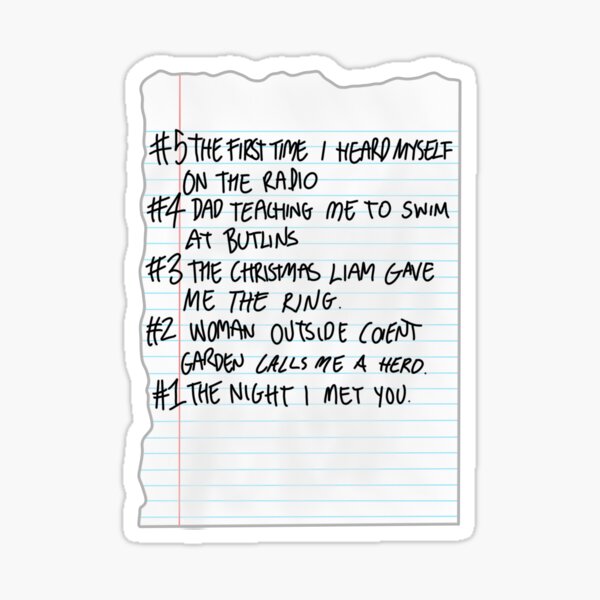 #5 THE FIRST TIME I HEARD MYSELF
ON THE RADIO
#4 DAD TEACHING ME TO SWIM
AT BUTLINS
#3 THE CHRISTMAS LIAM GAVE
ME THE RING.
#2 WOMAN OUTSIDE COENT
GARDEN CALLS ME A HERO.
#1 THE NIGHT I MET YOU.